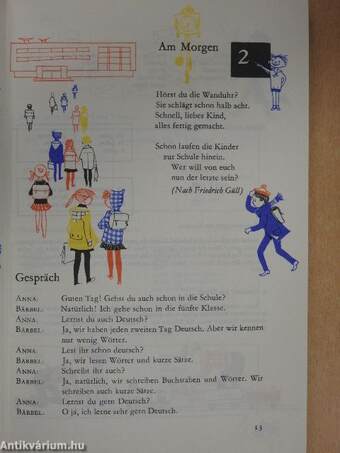 Am Morgen
2
Hörst du die Wanduhr?
Sie schlägt schon halb acht.
Schnell, liebes Kind,
alles fertig gemacht.
Schon laufen die Kinder
zur Schule hinein.
Wer will von euch
nun der letzte sein?
(Nach Friedrich Güll)
Gespräch
ANNA: Guten Tag! Gehst du auch schon in die Schule?
BÄRBEL: Natürlich! Ich gehe schon in die fünfte Klasse.
ANNA: Lernst du auch Deutsch?
BÄRBEL: Ja, wir haben jeden zweiten Tag Deutsch. Aber wir kennen
nur wenig Wörter.
ANNA: Lest ihr schon deutsch?
BÄRBEL: Ja, wir lesen Wörter und kurze Sätze.
ANNA: Schreibt ihr auch?
BÄRBEL: Ja, natürlich, wir schreiben Buchstaben und Wörter. Wir
schreiben auch kurze Sätze.
ANNA: Lernst du gern Deutsch?
BÄRBEL: O ja, ich lerne sehr gern Deutsch.
13
Antikvárium.hu